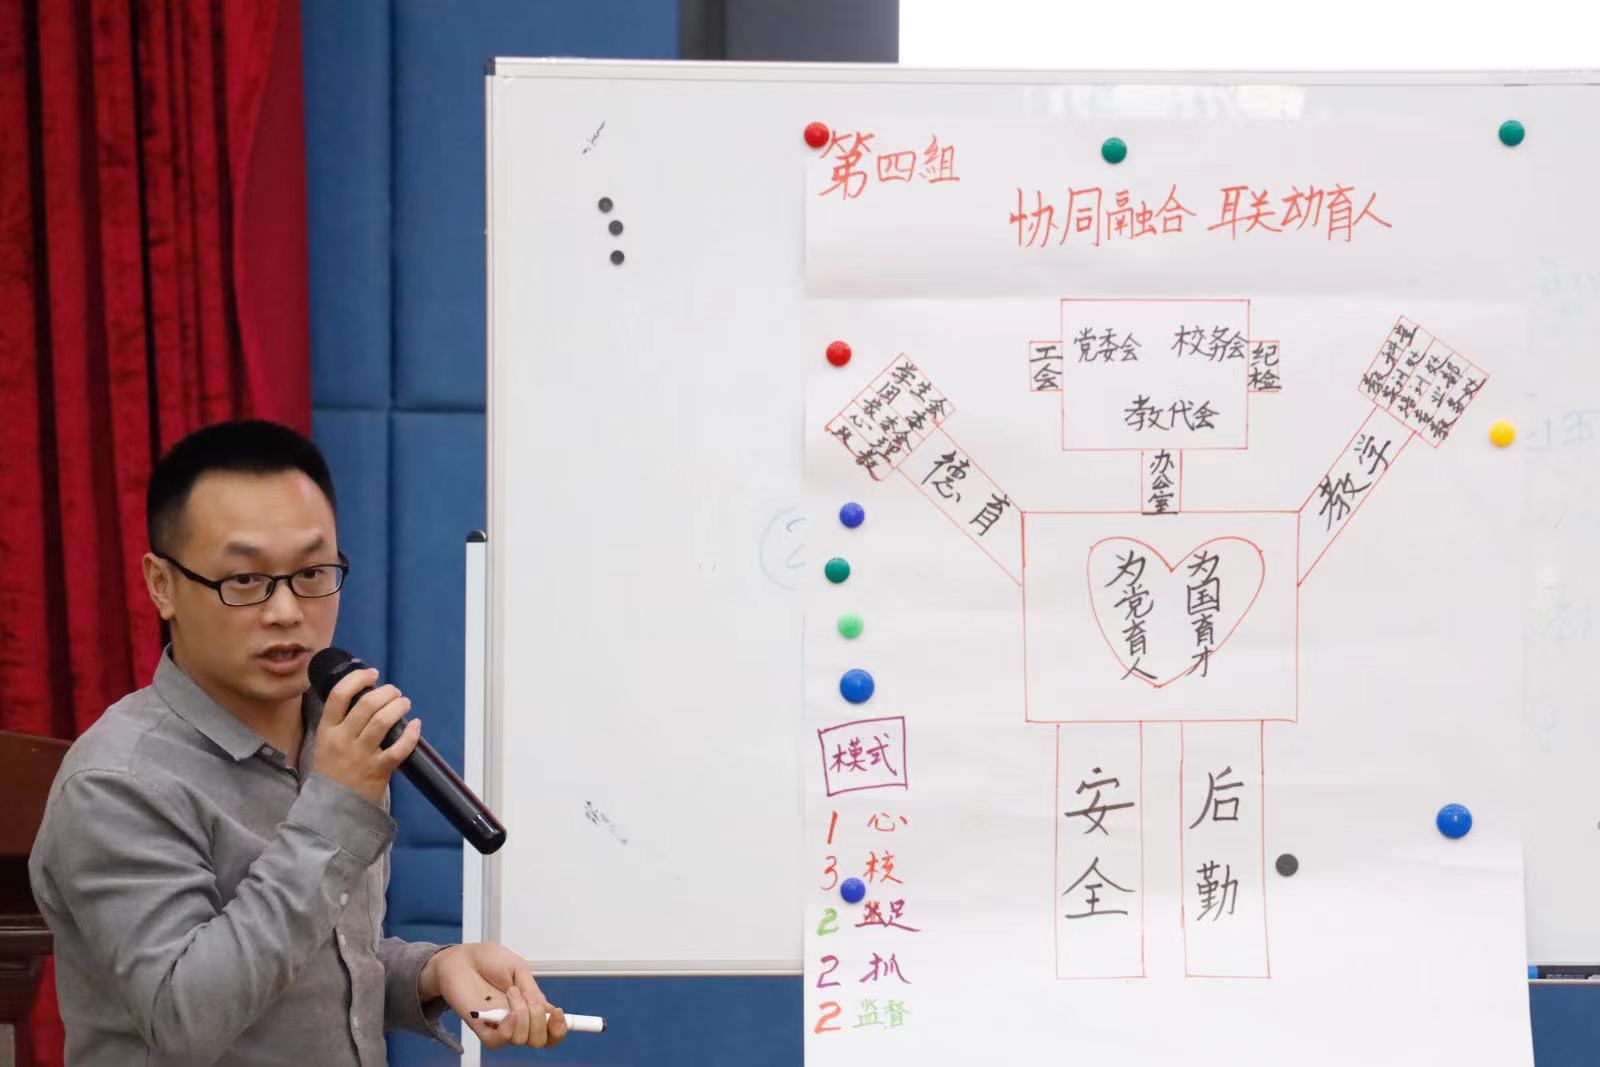 第四組
协同融合 联动育人
党委会 校务会
教代会
工会
纪检
办公室
学生会
德育
教学
为党育人
为国育才
安全
后勤
模式
1 心
3 核
2 足
2 抓
2 监督